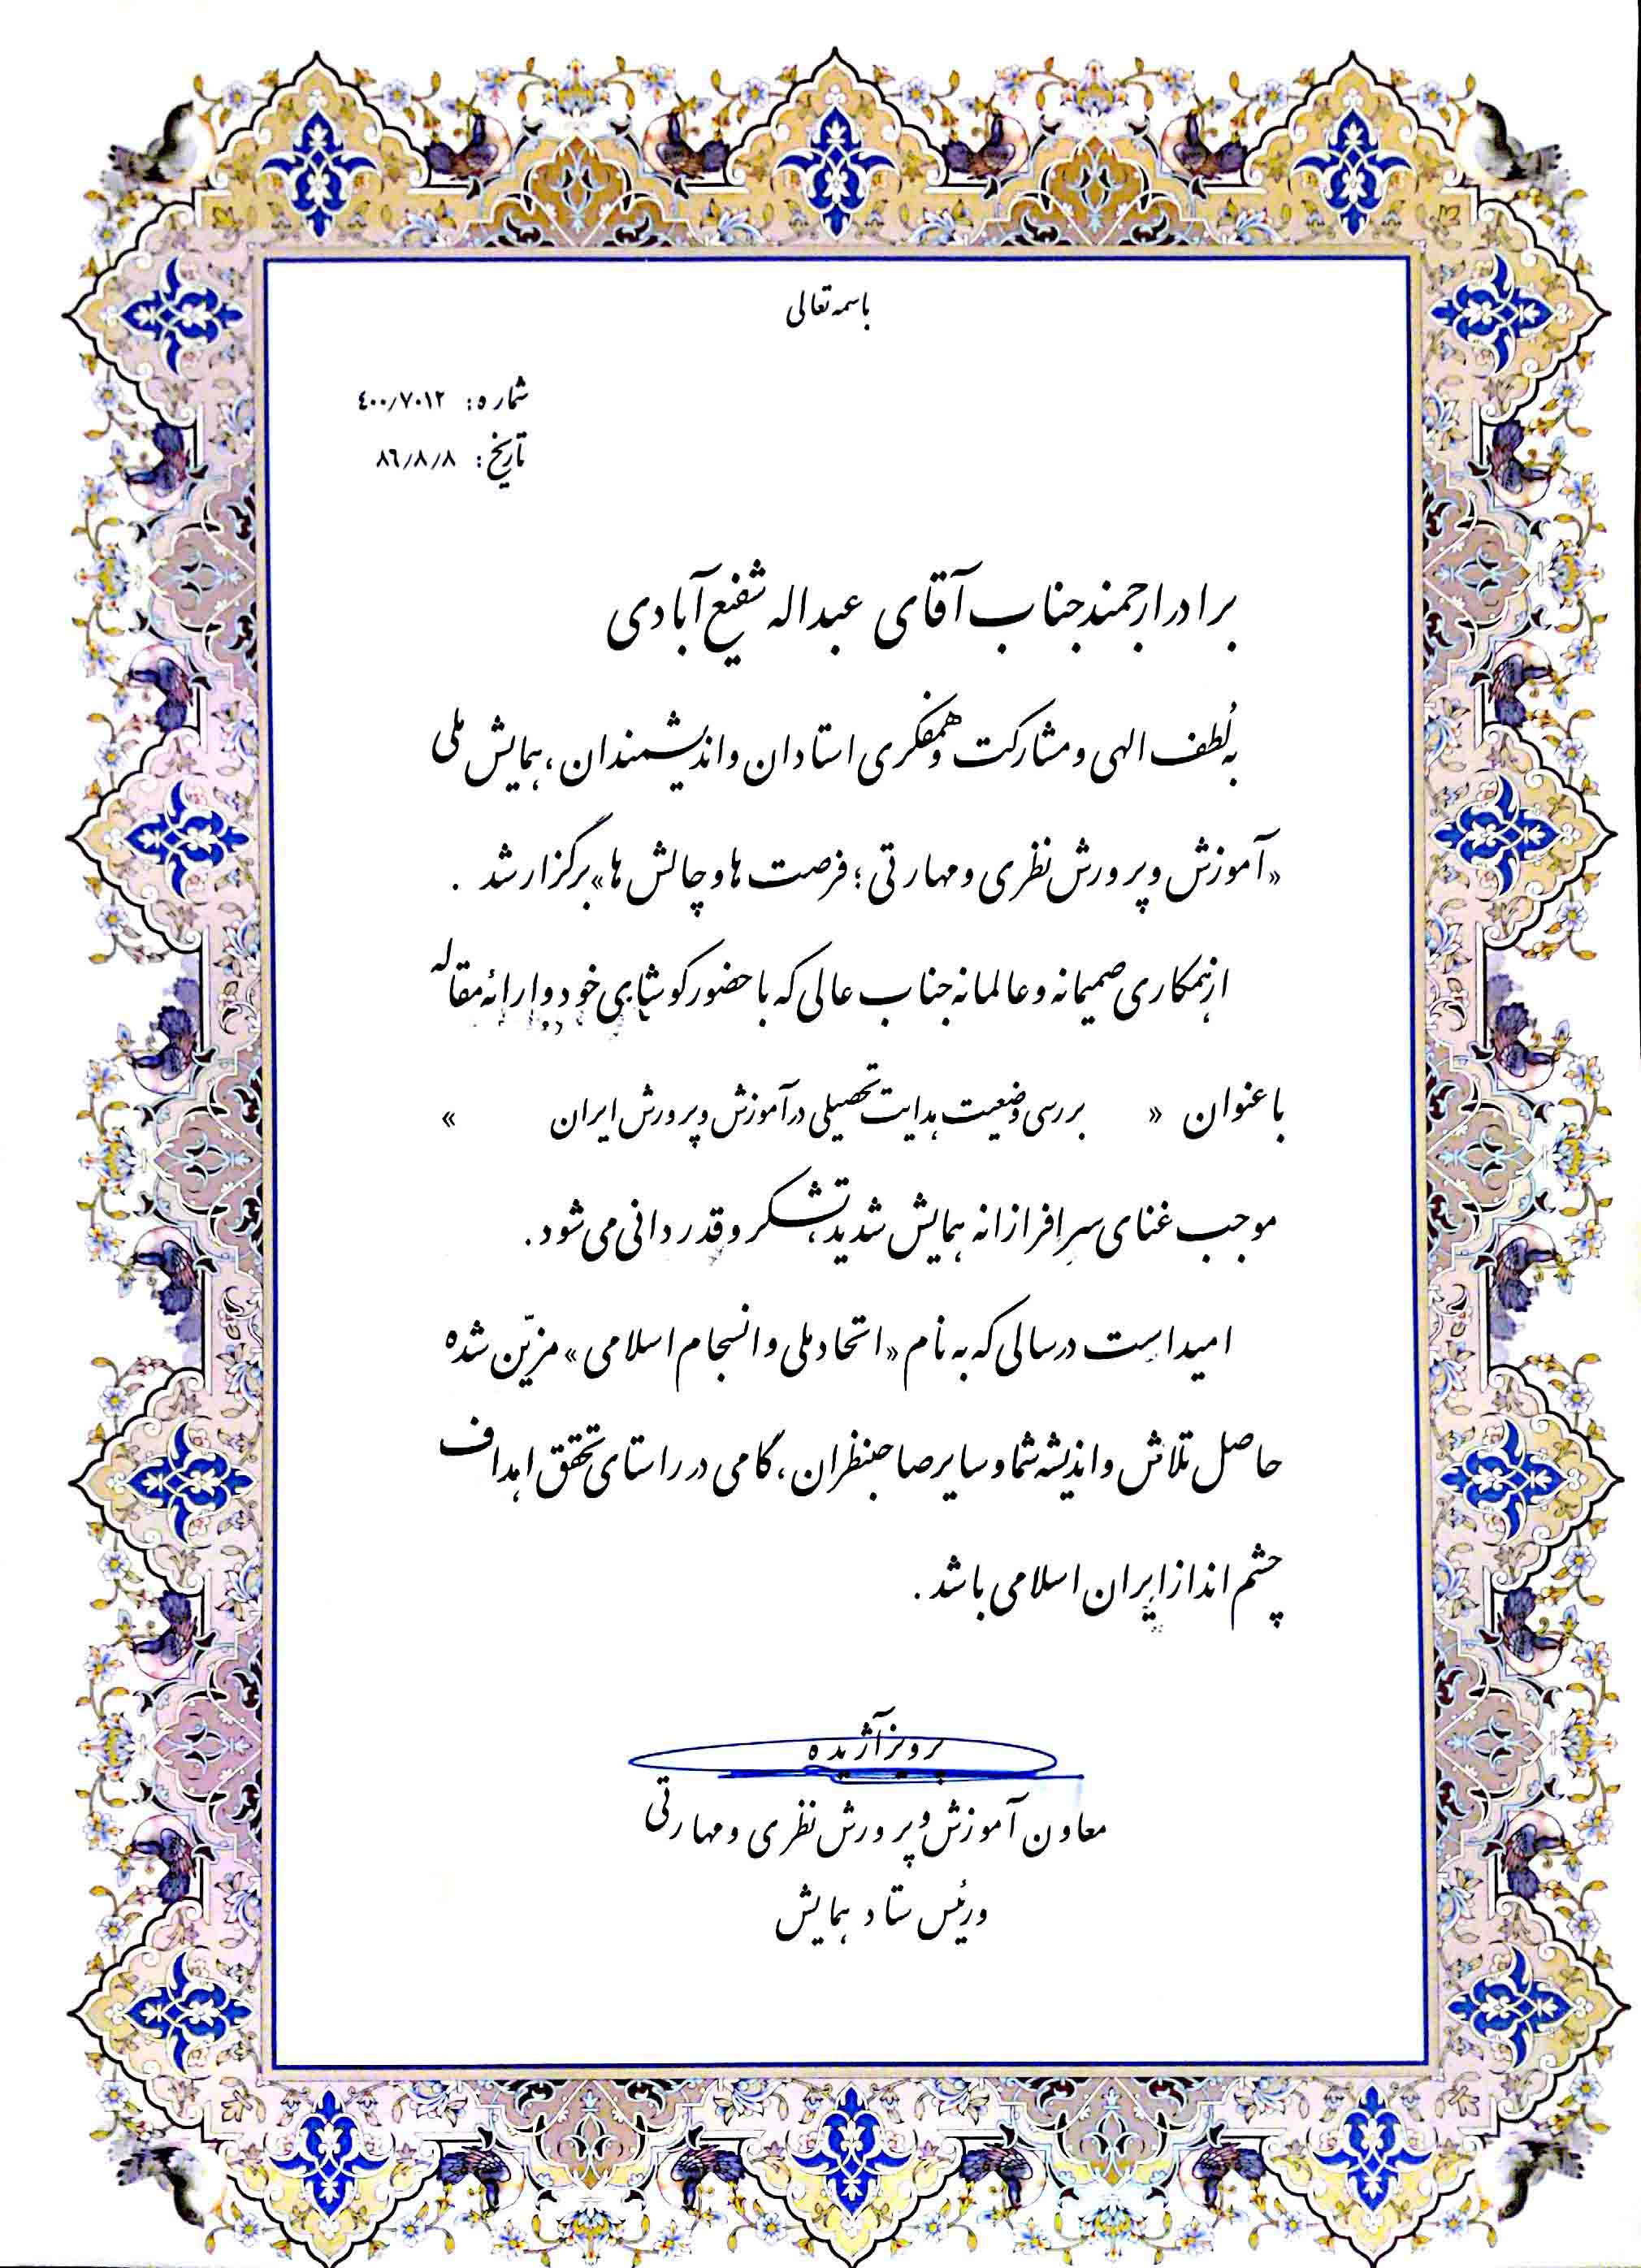 باسمه تعالی
شماره: ۴۰۰/۷۰۱۲
تاریخ: ۸۶/۸/۸
برادر ارجمند جناب آقای عبداله شفیع آبادی
به لُطف الهی و مشارکت و همفکری استادان و اندیشمندان، همایش ملی
«آموزش و پرورش نظری و مهارتی؛ فرصت ها و چالش ها» برگزار شد .
از همکاری صمیمانه و عالمانه جناب عالی که با حضور کوشای خود و ارائه مقاله
با عنوان « بررسی وضعیت هدایت تحصیلی در آموزش و پرورش ایران »
موجب غنای سرافرازانه همایش شدید، تشکر و قدردانی می شود .
امید است در سالی که به نام «اتحاد ملی و انسجام اسلامی» مزیّن شده
حاصل تلاش و اندیشه شما و سایر صاحبنظران، گامی در راستای تحقق اهداف
چشم انداز ایران اسلامی باشد .
پرویز آژیده
معاون آموزش و پرورش نظری و مهارتی
و رئیس ستاد همایش